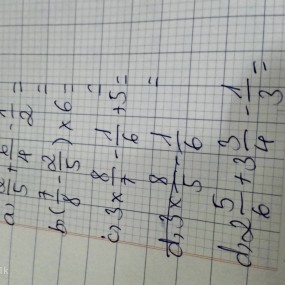 a, 2/5 + 6/4 - 1/2 =
b, (7/8 - 2/5) × 6 =
c, 3 × 8/7 - 1/6 + 5 =
d, 3 × 8/5 - 1/6 =
d, 2 5/6 + 3 3/4 - 1/3 =